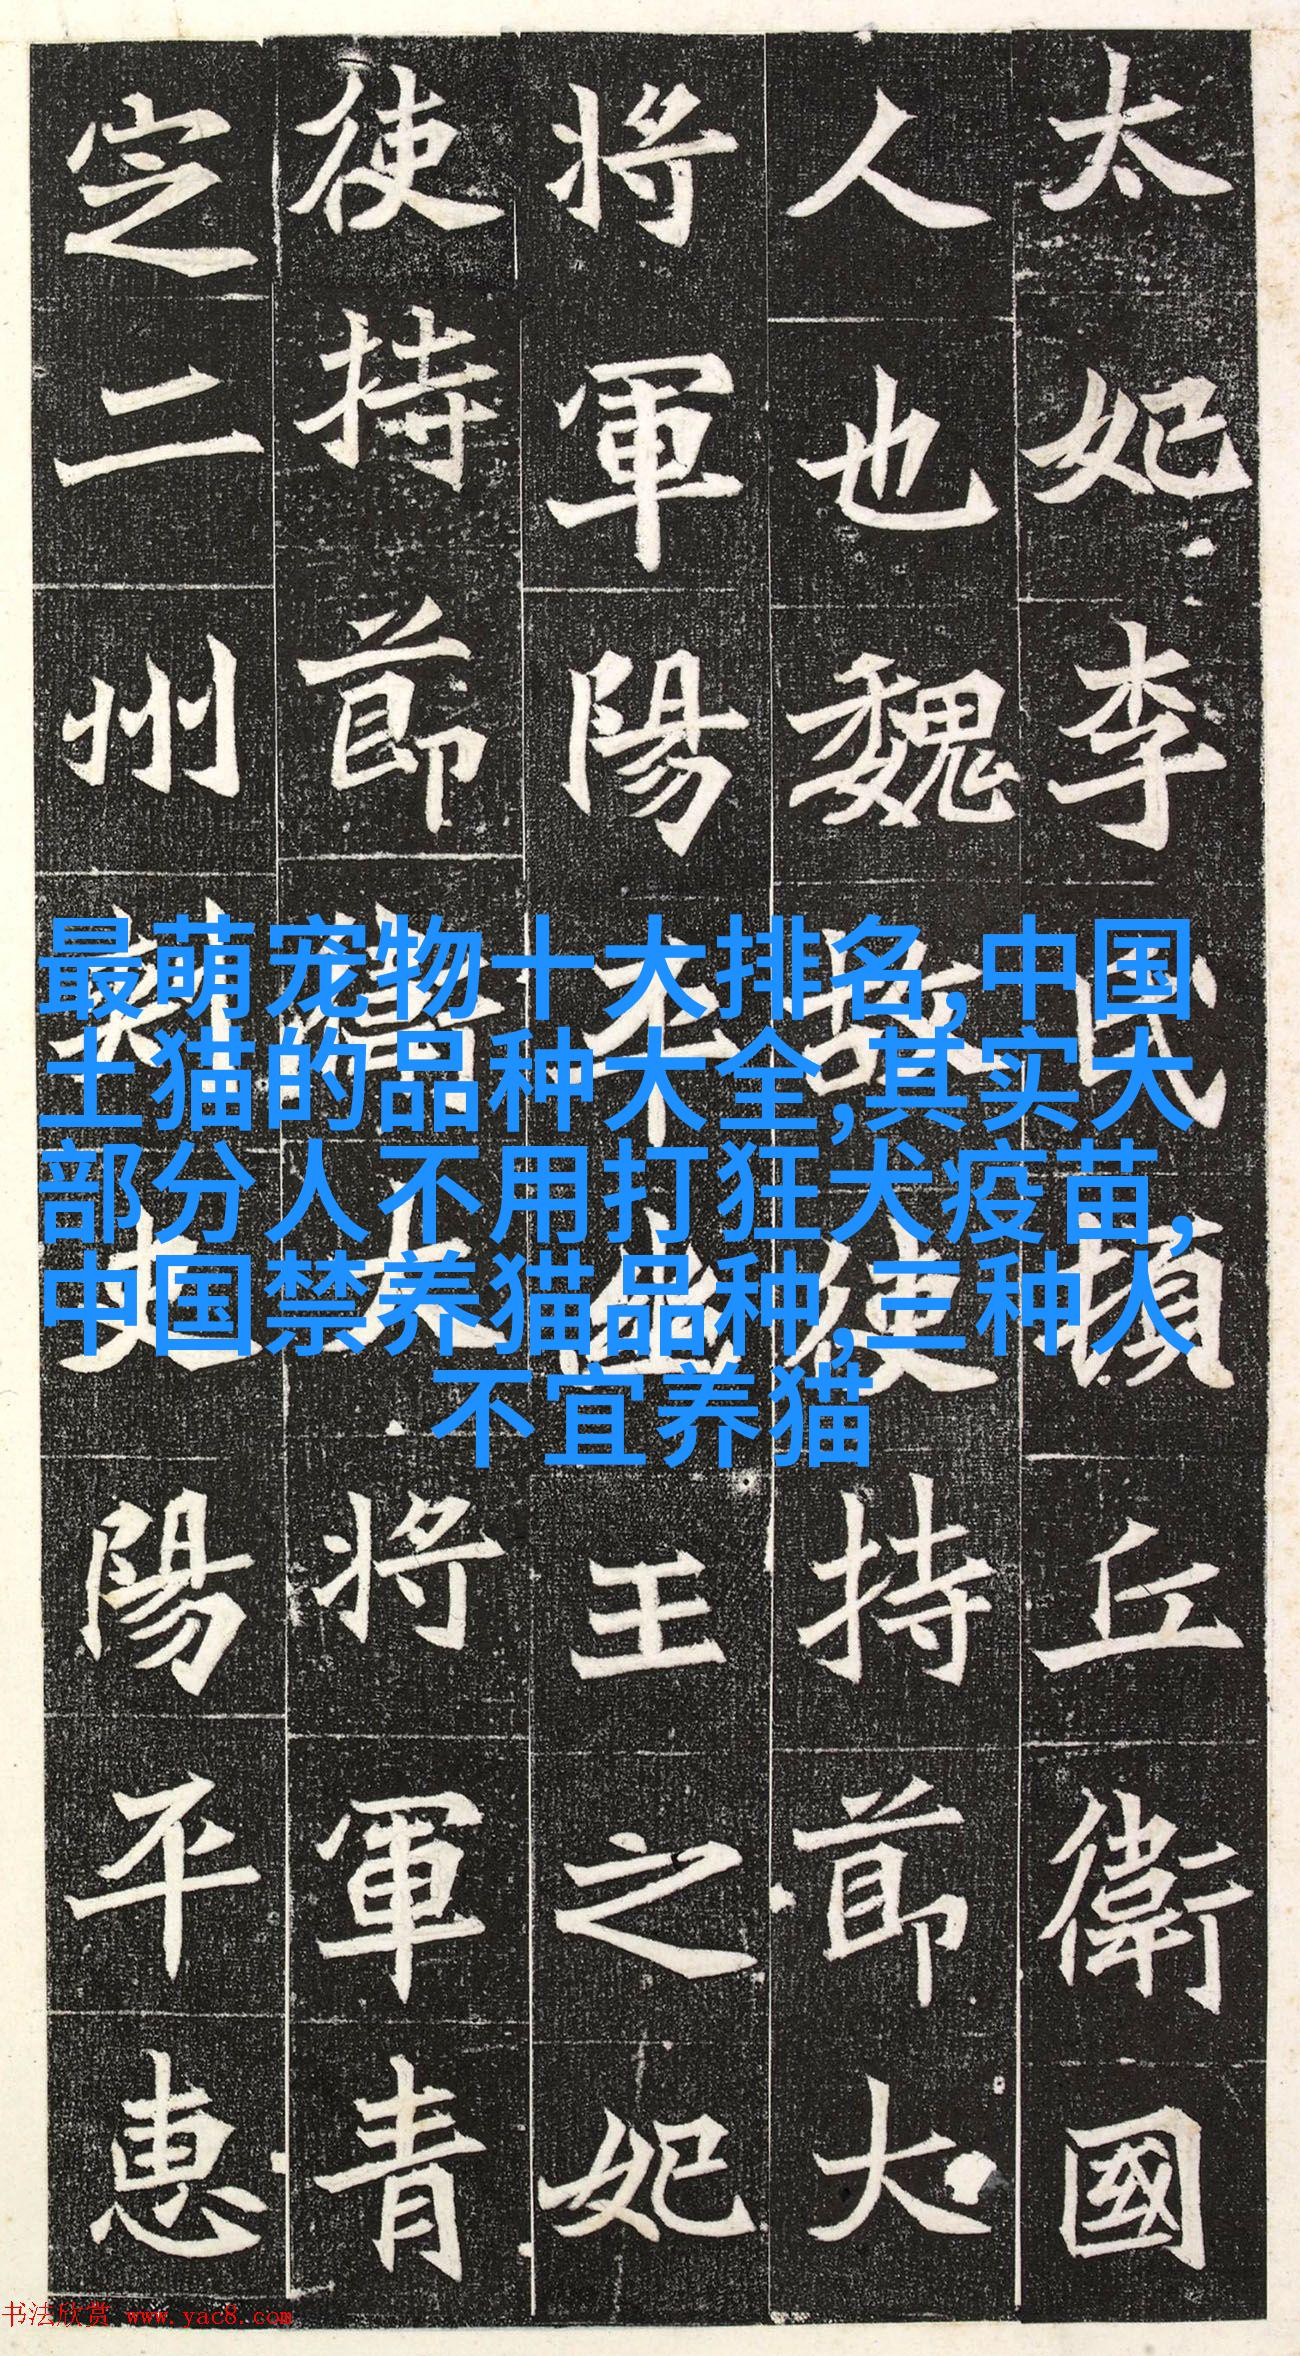 太妃李氏頓丘衛國
人也魏故使持節大
將軍陽平幽王之妃
使持節衛大將軍青
定二州刺史陽平惠
最萌宠物十大排名,中国
土猫的品种大全,其实大
部分人不用打狂犬疫苗,
中国禁养猫品种,三种人
不宜养猫
书法欣赏 www.yac8.com